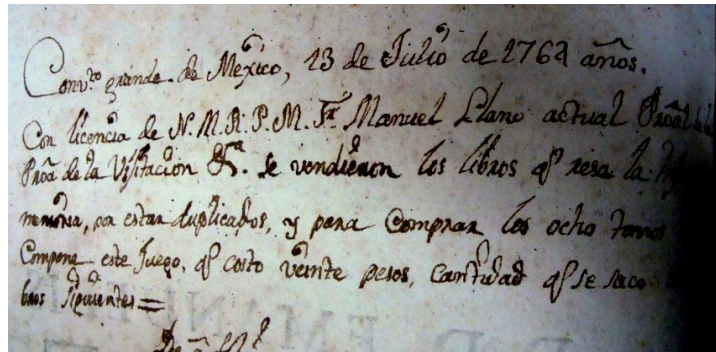 Conv.to grande de Mexico, 13 de Julio de 1762 años.
Con licencia de N. M. R. P. M. Fr. Manuel Llano actual Pro.al
Pro.a de la Visitacion &.a se vendieron los libros q.e resa la
memoria, por estar duplicados, y para Comprar los ocho tomos
Compone este Juego, q.e costo veinte pesos, cantidad q.e se saco
bros siguientes=